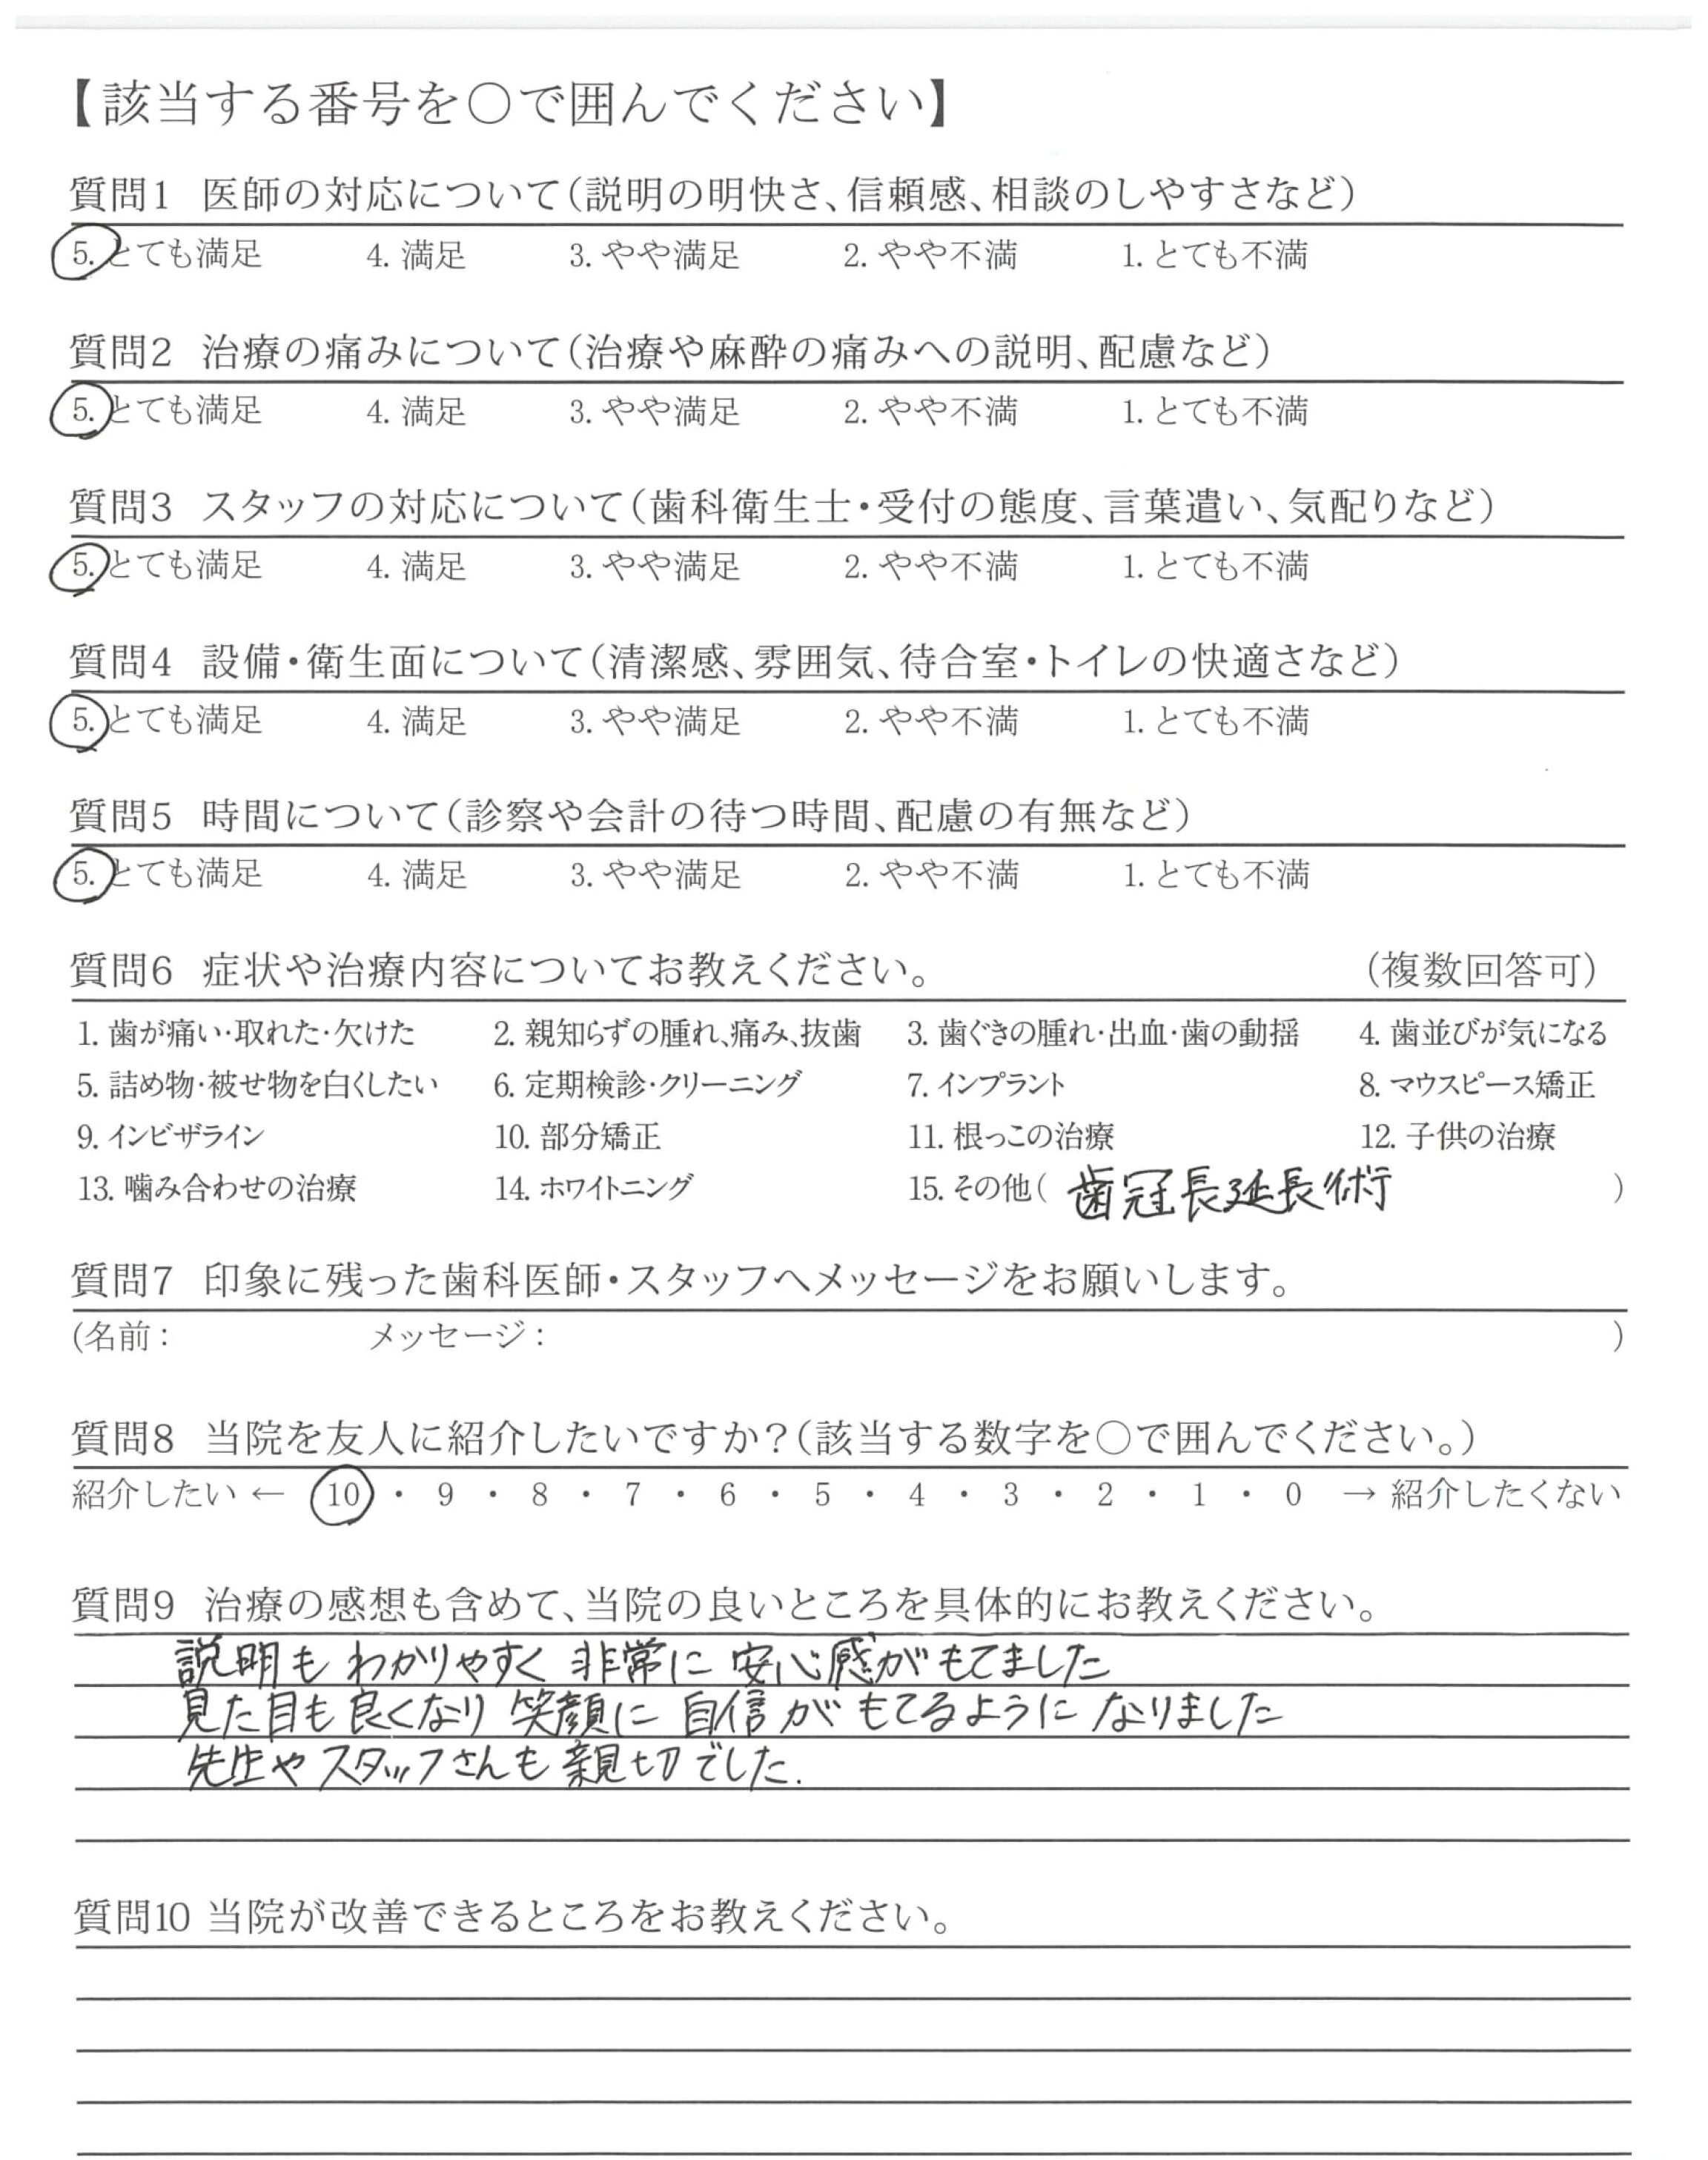 【該当する番号を〇で囲んでください】
質問1 医師の対応について(説明の明快さ、信頼感、相談のしやすさなど)
5. とても満足 4. 満足 3. やや満足 2. やや不満 1. とても不満
質問2 治療の痛みについて(治療や麻酔の痛みへの説明、配慮など)
5. とても満足 4. 満足 3. やや満足 2. やや不満 1. とても不満
質問3 スタッフの対応について(歯科衛生士・受付の態度、言葉遣い、気配りなど)
5. とても満足 4. 満足 3. やや満足 2. やや不満 1. とても不満
質問4 設備・衛生面について(清潔感、雰囲気、待合室・トイレの快適さなど)
5. とても満足 4. 満足 3. やや満足 2. やや不満 1. とても不満
質問5 時間について(診察や会計の待つ時間、配慮の有無など)
5. とても満足 4. 満足 3. やや満足 2. やや不満 1. とても不満
質問6 症状や治療内容についてお教えください。 (複数回答可)
1. 歯が痛い・取れた・欠けた 2. 親知らずの腫れ、痛み、抜歯 3. 歯ぐきの腫れ・出血・歯の動揺 4. 歯並びが気になる
5. 詰め物・被せ物を白くしたい 6. 定期検診・クリーニング 7. インプラント 8. マウスピース矯正
9. インビザライン 10. 部分矯正 11. 根っこの治療 12. 子供の治療
13. 噛み合わせの治療 14. ホワイトニング 15. その他( 歯冠長延長術 )
質問7 印象に残った歯科医師・スタッフへメッセージをお願いします。
(名前: メッセージ: )
質問8 当院を友人に紹介したいですか?(該当する数字を〇で囲んでください。)
紹介したい ← 10 ・ 9 ・ 8 ・ 7 ・ 6 ・ 5 ・ 4 ・ 3 ・ 2 ・ 1 ・ 0 → 紹介したくない
質問9 治療の感想も含めて、当院の良いところを具体的にお教えください。
説明もわかりやすく 非常に 安心感がもてました
見た目も良くなり 笑顔に 自信が もてるように なりました
先生や スタッフさんも 親切でした.
質問10 当院が改善できるところをお教えください。